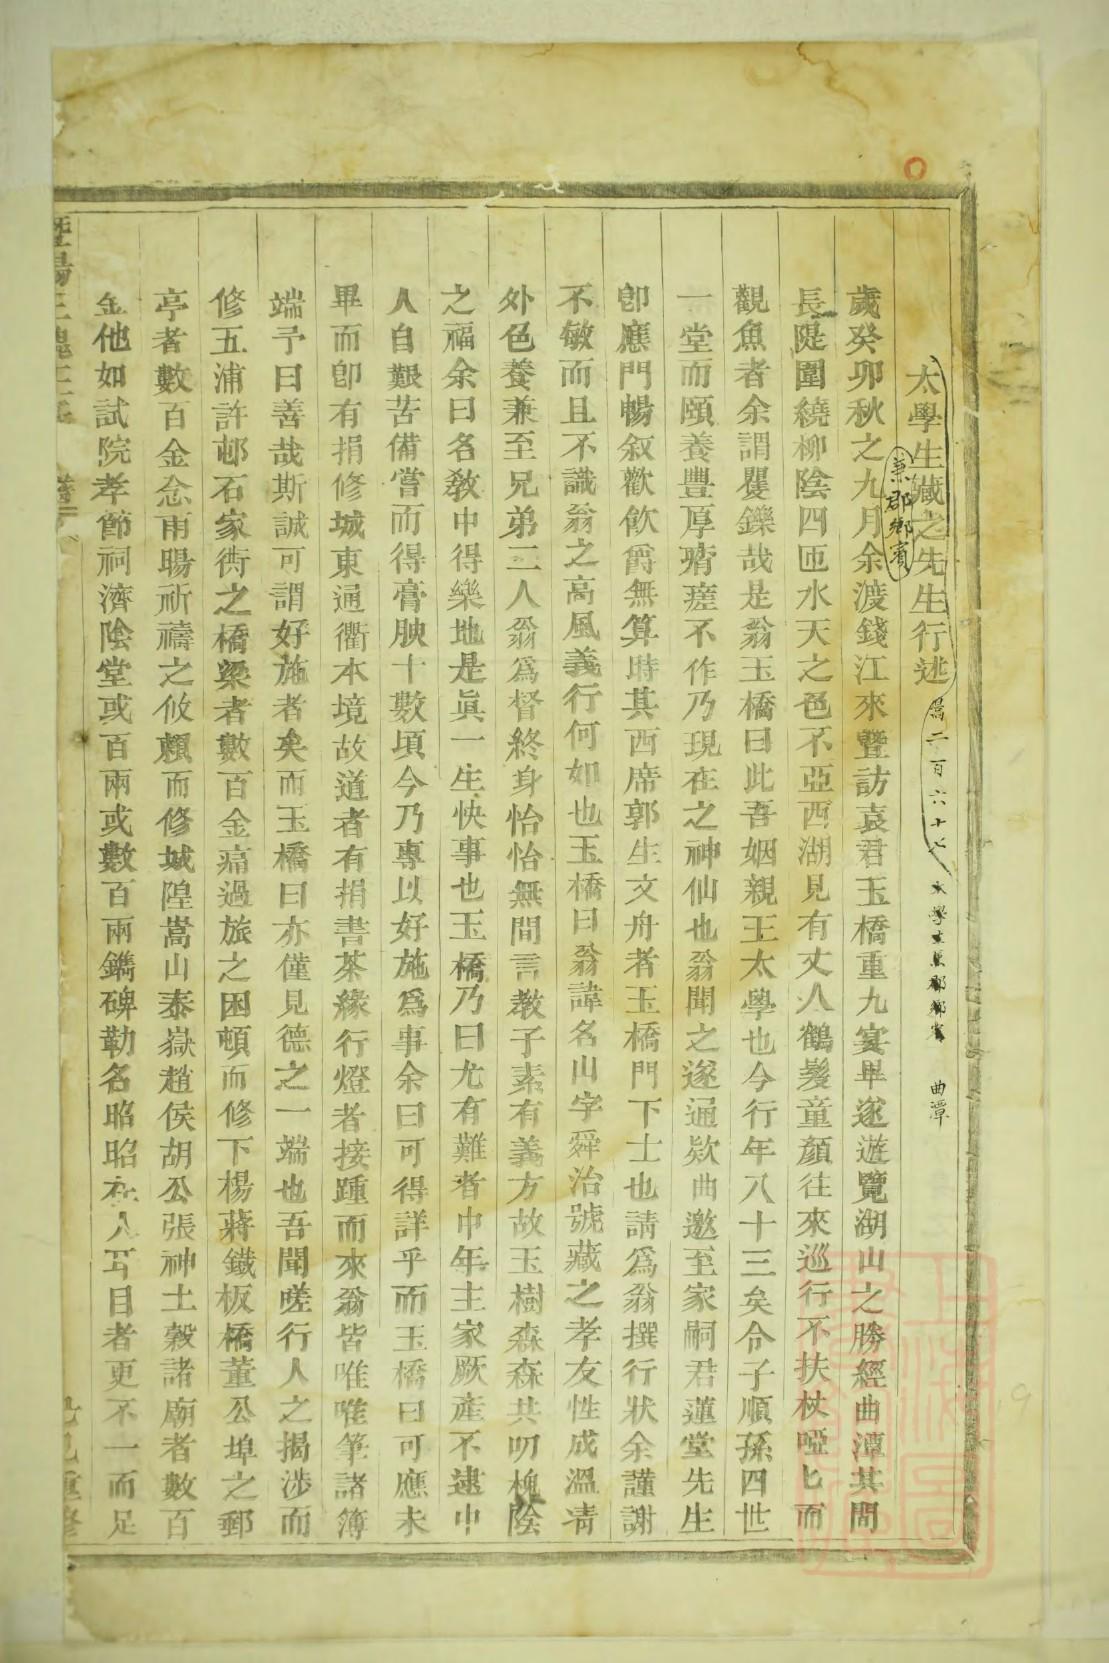 太學生藏之先生行述
兼郡鄉賓
爲二百六十七
太學生兼郡鄉賓 曲潭
歲癸卯秋之九月余渡錢江來暨訪袁君玉橋重九宴畢遂遊覽湖山之勝經曲潭其間
長隄圍繞柳陰四匝水天之色不亞西湖見有丈人鶴髮童顏往來巡行不扶杖啞匕而
觀魚者余謂矍鑠哉是翁玉橋曰此吾姻親王太學也今行年八十三矣令子順孫四世
一堂而頤養豐厚瘠瘥不作乃現在之神仙也翁聞之遂通欵曲邀至家嗣君蓮堂先生
卽應門暢叙歡飮爵無算時其西席郭生文舟者玉橋門下士也請爲翁撰行狀余謹謝
不敏而且不識翁之高風義行何如也玉橋曰翁諱名山字舜治號藏之孝友性成溫凊
外色養兼至兄弟二人翁爲督終身怡怡無間言教子素有義方故玉樹森森共叨槐陰
之福余曰名敎中得樂地是眞一生快事也玉橋乃曰尤有難者中年主家厥產不逮中
人自艱苦備嘗而得膏腴十數頃今乃專以好施爲事余曰可得詳乎而玉橋曰可應未
畢而卽有捐修城東通衢本境故道者有捐書茶緣行燈者接踵而來翁皆唯唯筆諸簿
端予曰善哉斯誠可謂好施者矣而玉橋曰亦僅見德之一端也吾聞嗟行人之揭涉而
修五浦許邨石家衖之橋梁者數百金痛過旅之困頓而修下楊蔣鐵板橋董公埠之郵
亭者數百金念雨暘祈禱之攸賴而修城隍嵩山泰嶽趙侯胡公張神土穀諸廟者數百
金他如試院孝節祠濟陰堂或百兩或數百兩鐫碑勒名昭昭在人耳目者更不一而足